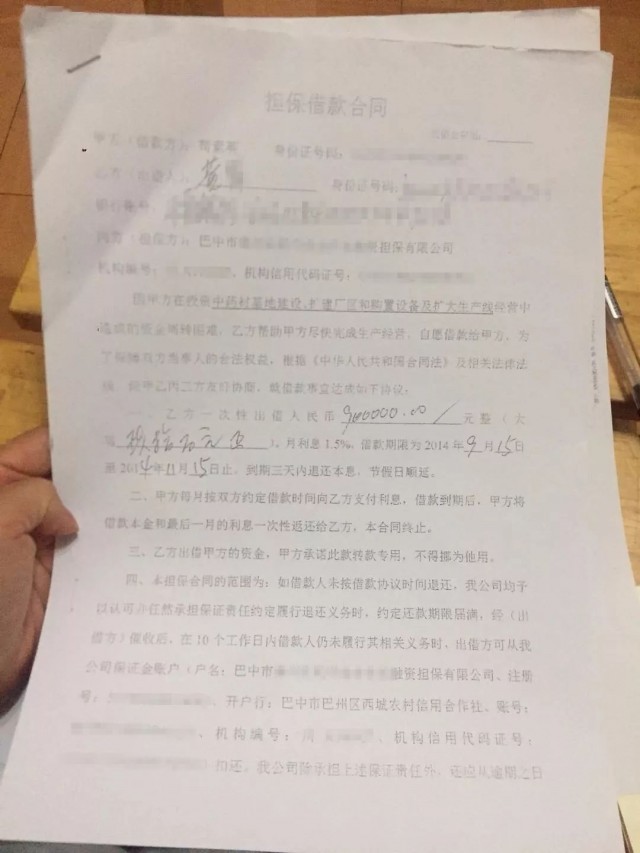 担保借款合同
甲方（借款方）： 身份证号码：
乙方（出借人）： 身份证号码：
银行账号：
丙方（担保方）：巴中市 资担保有限公司
机构编号： ，机构信用代码证号：
因甲方在投资中药材基地建设、扩建厂区和购置设备及扩大生产线经营中
造成的资金周转困难，乙方帮助甲方尽快完成生产经营，自愿借款给甲方，为
了保障有方当事人的合法权益，根据《中华人民共和国合同法》及相关法律法
规，经甲乙丙三方友好协商，就借款事宜达成如下协议：
一、乙方一次性出借人民币 900000.00 元整（大
写 玖拾万元正 ）。月利息1.5%，借款期限为2014年9月15日
至2014年11月15日止，到期三天内退还本息，节假日顺延。
二、甲方每月按双方约定借款时间向乙方支付利息，借款到期后，甲方将
借款本金和最后一月的利息一次性退还给乙方，本合同终止。
三、乙方出借甲方的资金，甲方承诺此款转款专用，不得挪为他用。
四、本担保合同的范围为：如借款人未按借款协议时间退还，我公司均予
以认可并任然承担保证责任约定履行退还义务时，约定还款期限届满，经（出
借方）催收后，在10个工作日内借款人仍未履行其相关义务时，出借方可从我
公司保证金账户（户名：巴中市 融资担保有限公司、注册
号： 、开户行：巴中市巴州区西城农村信用合作社、账号：
、机构编号： 、机构信用代码证号：
）扣还，我公司除承担上述保证责任外，还应从逾期之日